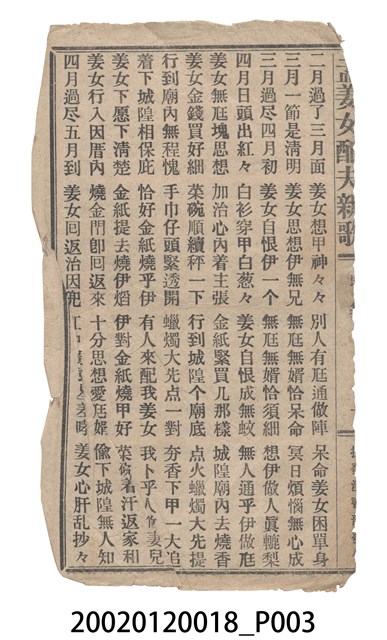 孟姜女配夫新歌
二月過了三月面 姜女想甲神々々 別人有尫通做陣 呆命姜女困單身
三月一節是清明 姜女思想伊無兄 無尫無婿恰呆命 冥日煩惱無心成
三月過尽四月初 姜女自恨伊一个 無尫無婿恰須細 想伊做人真轆梨
四月日頭出紅々 白衫穿甲白葱々 姜女自恨成無蚊 無人通乎伊做尫
姜女無尫塊思想 加治心內着主張 金紙緊買几那樣 城隍廟內去燒香
姜女金錢買好細 菜碗順續秤一下 行到城隍个廟底 点火蠟燭大先提
行到廟內無程愧 手巾仔頭緊透開 蠟燭大先点一對 夯香下甲一大追
着下城隍相保庇 恰好金紙燒乎伊 有人來配我姜女 我卜乎人做妻兒
姜女下愿下清楚 金紙提去燒伊熖 伊對金紙燒甲好 菜碗着汗返家和
姜女行入因厝內 燒金門即囘返來 十分思想愛尫婿 偷下城隍無人知
四月過尽五月到 姜女囘返治因兜 姜女心肝乱抄々
20020120018_P003